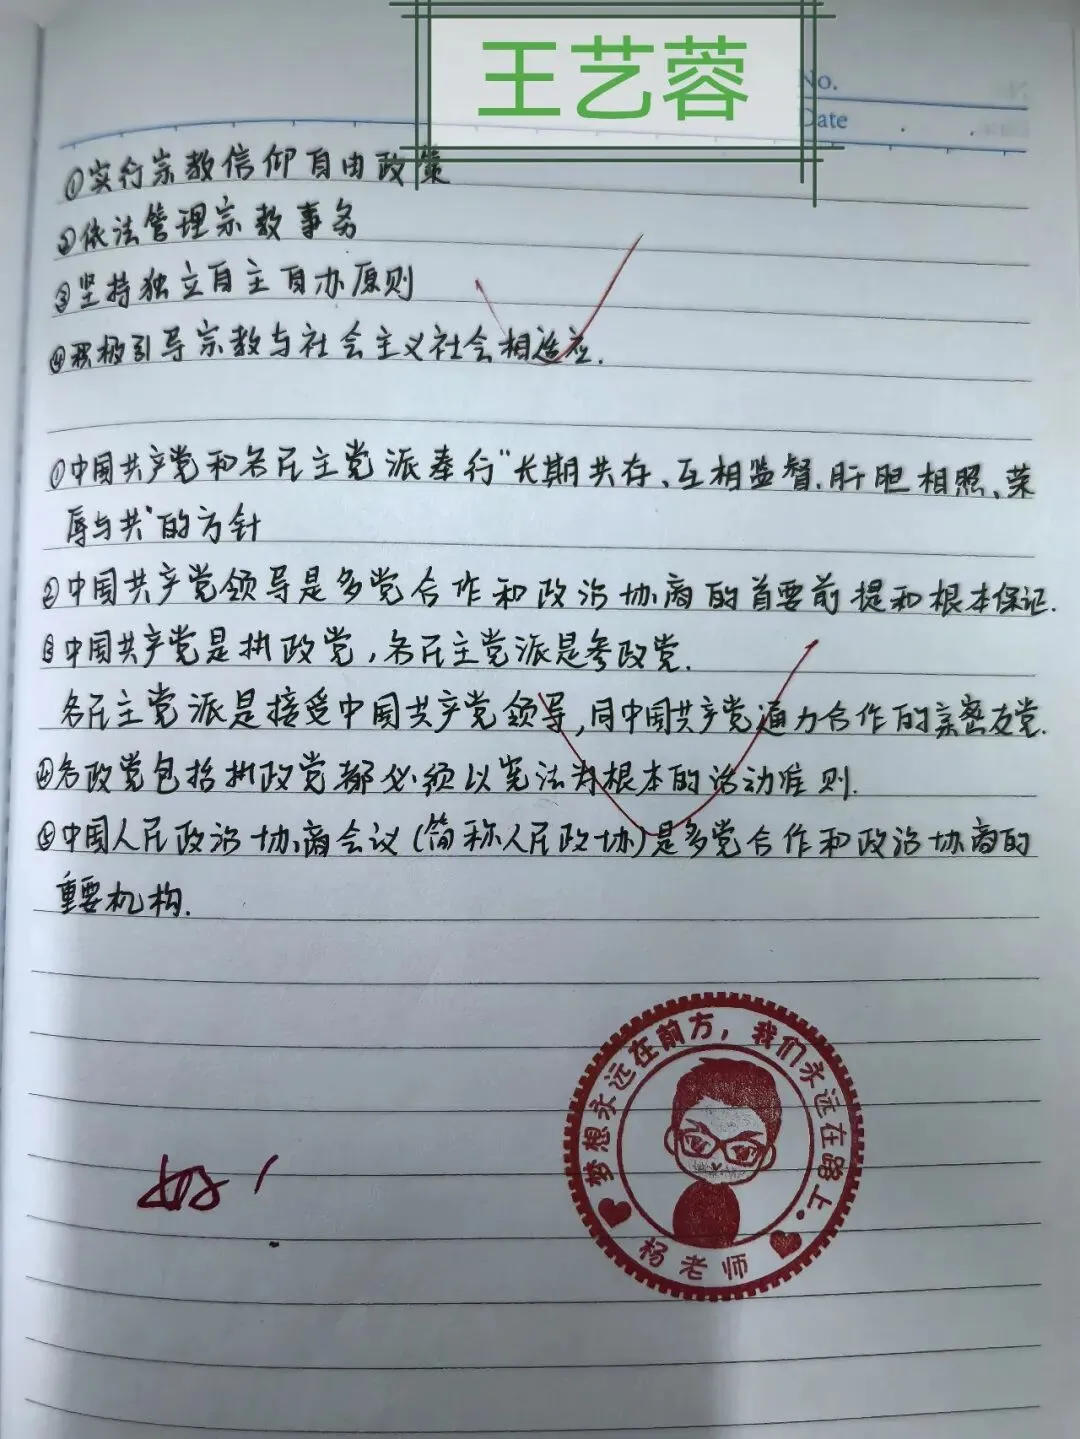 王艺蓉
No.
Date
①实行宗教信仰自由政策
②依法管理宗教事务
③坚持独立自主自办原则
④积极引导宗教与社会主义社会相适应.
①中国共产党和各民主党派奉行“长期共存、互相监督.肝胆相照、荣
辱与共”的方针
②中国共产党领导是多党合作和政治协商的首要前提和根本保证.
③中国共产党是执政党,各民主党派是参政党.
各民主党派是接受中国共产党领导,同中国共产党通力合作的亲密友党.
④各政党包括执政党都必须以宪法为根本的活动准则.
⑤中国人民政治协商会议(简称人民政协)是多党合作和政治协商的
重要机构.
梦想永远在前方，我们永远在路上.
杨老师
好!